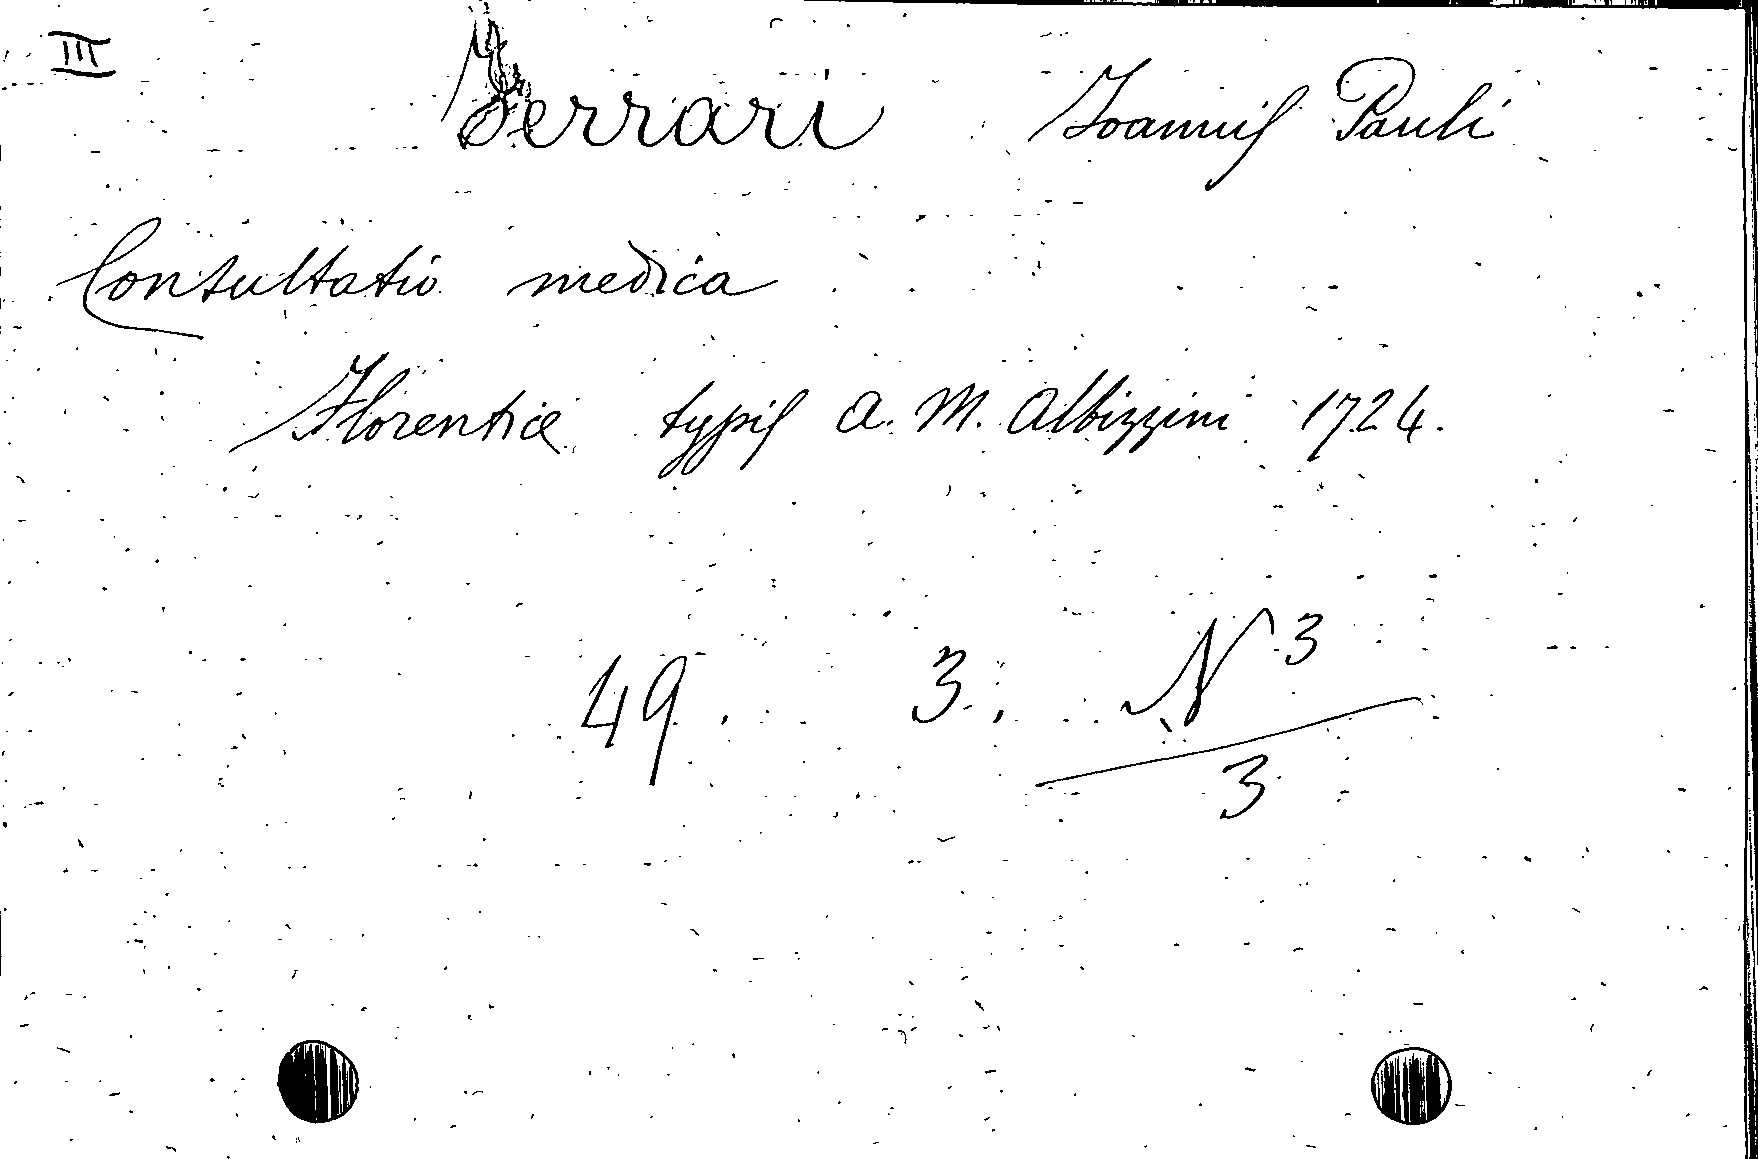 III
Ferrari Joannis Pauli
Consultatio medica
Florentiæ typis A. M. Albizzini 1724.
49. 3. N 3
3